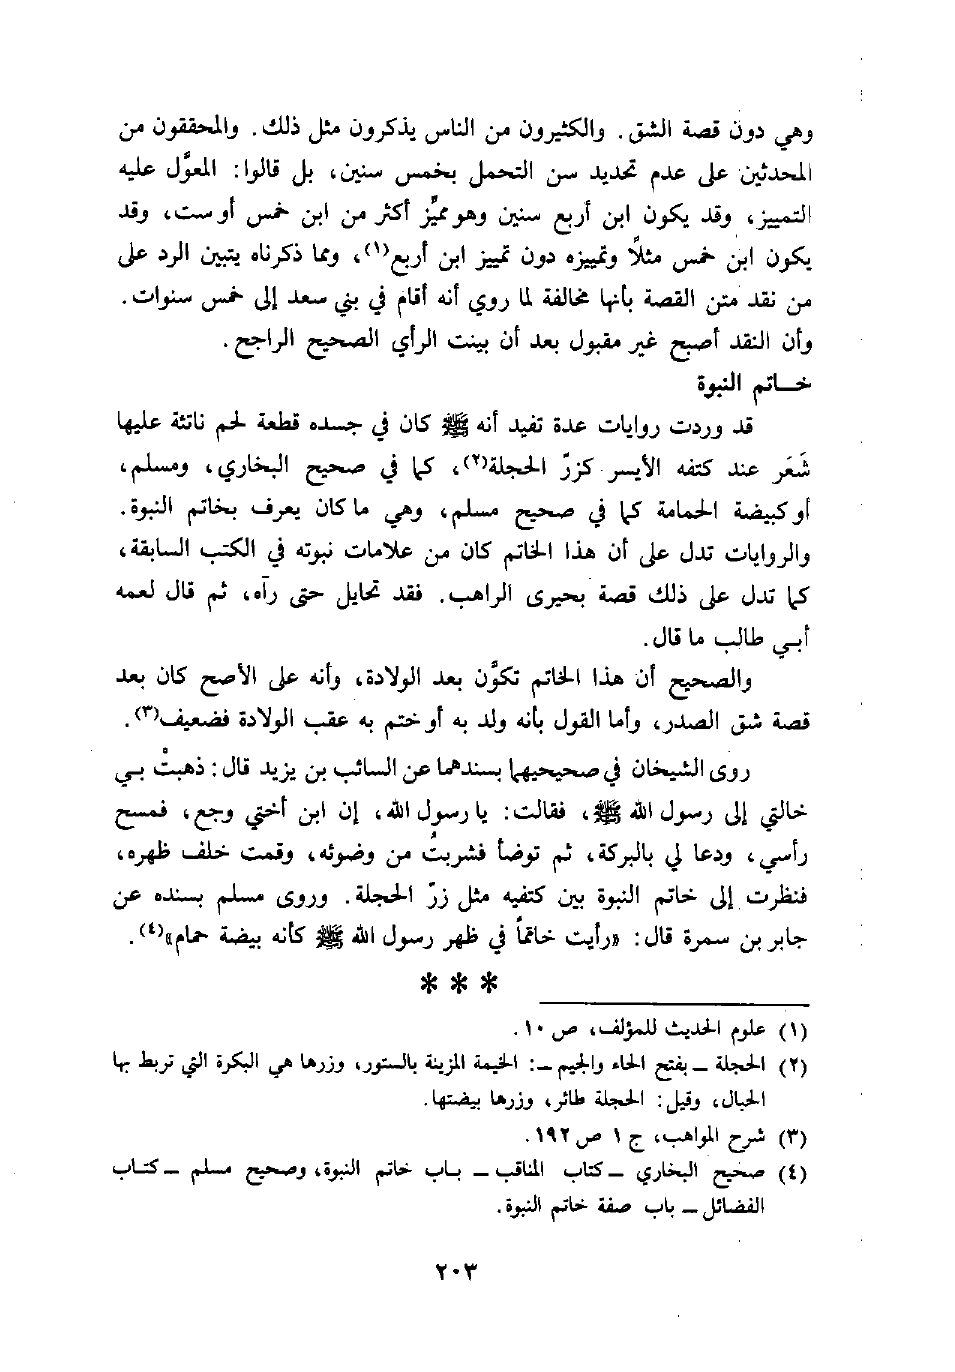 وهي دون قصة الشق. والكثيرون من الناس يذكرون مثل ذلك. والمحققون من
المحدثين على عدم تحديد سن التحمل بخمس سنين، بل قالوا: المعوَّل عليه
التمييز، وقد يكون ابن أربع سنين وهو مميِّز أكثر من ابن خمس أو ست، وقد
يكون ابن خمس مثلاً وتمييزه دون تمييز ابن أربع(١)، ومما ذكرناه يتبين الرد على
من نقد متن القصة بأنها مخالفة لما روي أنه أقام في بني سعد إلى خمس سنوات.
وأن النقد أصبح غير مقبول بعد أن بينت الرأي الصحيح الراجح.
خـاتم النبوة
قد وردت روايات عدة تفيد أنه ﷺ كان في جسده قطعة لحم ناتئة عليها
شَعَر عند كتفه الأيسر كزرّ الحجلة(٢)، كما في صحيح البخاري، ومسلم،
أو كبيضة الحمامة كما في صحيح مسلم، وهي ما كان يعرف بخاتم النبوة.
والروايات تدل على أن هذا الخاتم كان من علامات نبوته في الكتب السابقة،
كما تدل على ذلك قصة بحيرى الراهب. فقد تحايل حتى رآه، ثم قال لعمه
أبـي طالب ما قال.
والصحيح أن هذا الخاتم تكوَّن بعد الولادة، وأنه على الأصح كان بعد
قصة شق الصدر، وأما القول بأنه ولد به أو ختم به عقب الولادة فضعيف(٣).
روى الشيخان في صحيحيهما بسندهما عن السائب بن يزيد قال: ذهبتْ بـي
خالتي إلى رسول الله ﷺ، فقالت: يا رسول الله، إن ابن أختي وجع، فمسح
رأسي، ودعا لي بالبركة، ثم توضأ فشربتُ من وضوئه، وقمت خلف ظهره،
فنظرت إلى خاتم النبوة بين كتفيه مثل زرّ الحجلة. وروى مسلم بسنده عن
جابر بن سمرة قال: «رأيت خاتماً في ظهر رسول الله ﷺ كأنه بيضة حمام»(٤).
* * *
(١) علوم الحديث للمؤلف، ص ١٠.
(٢) الحجلة ــ بفتح الحاء والجيم ــ: الخيمة المزينة بالستور، وزرها هي البكرة التي تربط بها
الحبال، وقيل: الحجلة طائر، وزرها بيضتها.
(٣) شرح المواهب، ج ١ ص ١٩٢.
(٤) صحيح البخاري ــ كتاب المناقب ــ بـاب خاتم النبوة، وصحيح مسلم ــ كتـاب
الفضائل ــ باب صفة خاتم النبوة.
٢٠٣